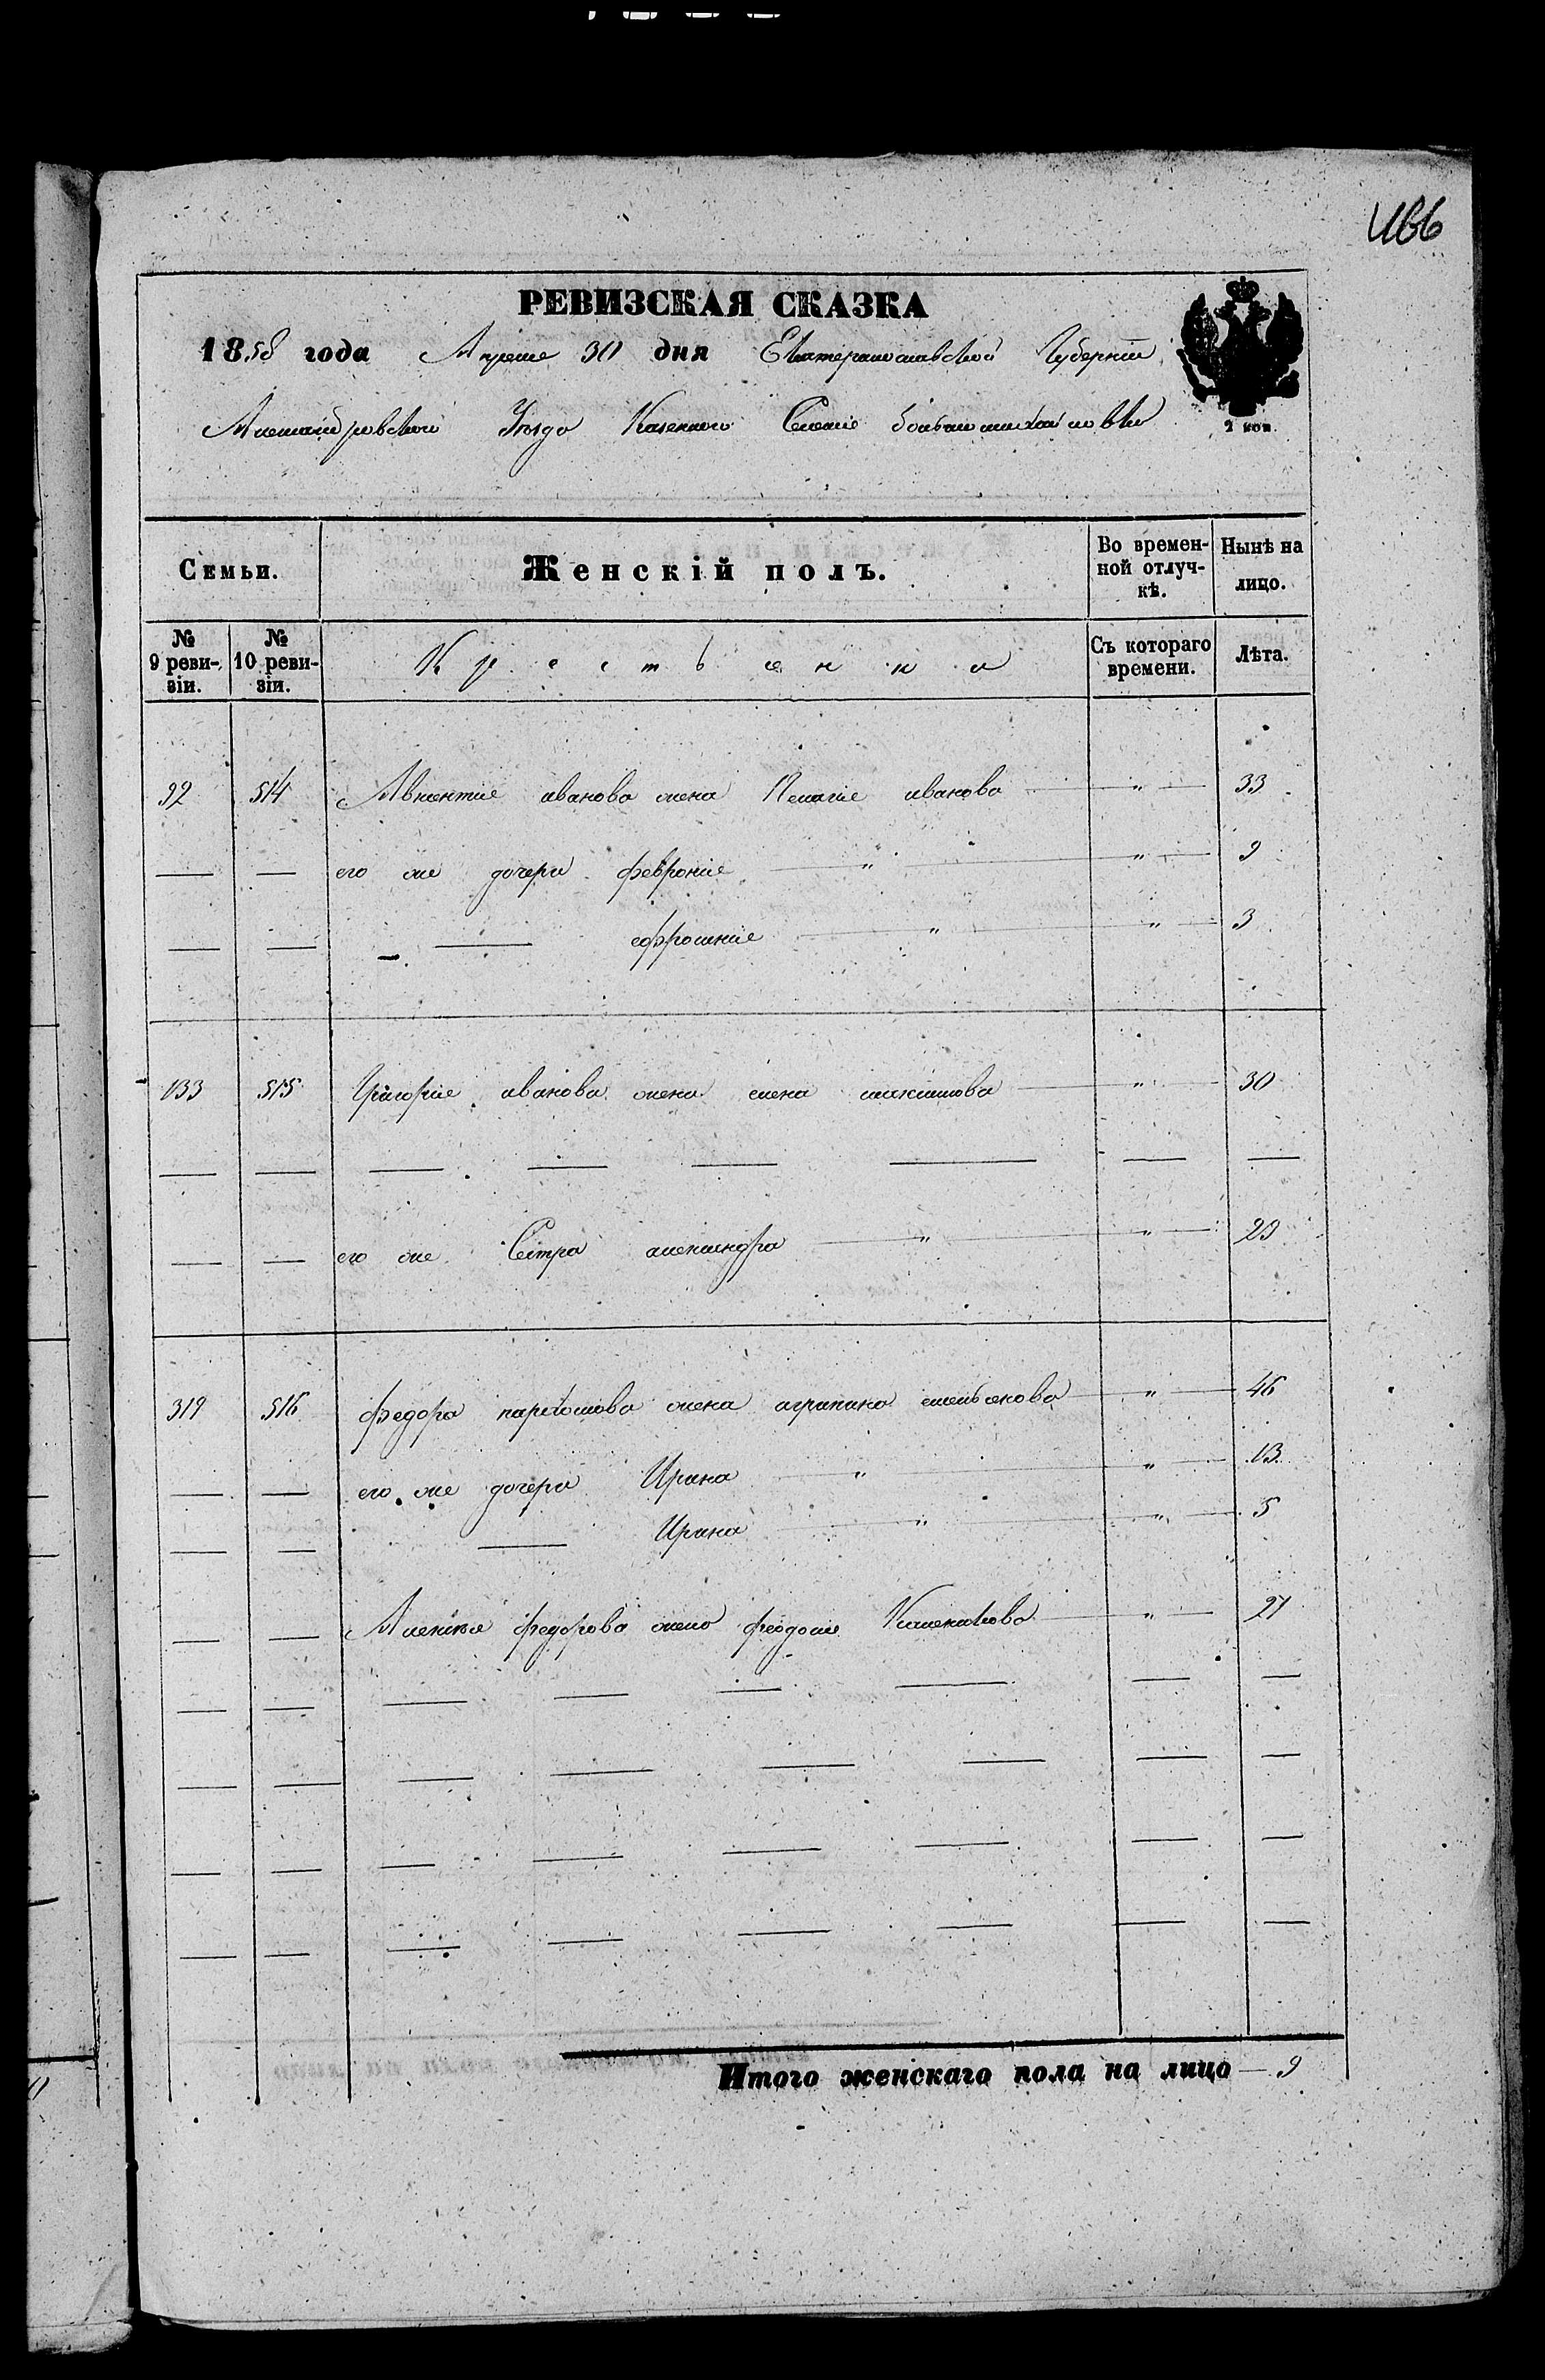 466
РЕВИЗСКАЯ СКАЗКА
1858 года Апреля 30 дня Екатеринославской Губернии
Александровского Уезда Казенного Селения большемихайловки
2 коп.
Семьи.
Женскій полъ.
Во времен-
ной отлуч-
кѣ.
Нынѣ на
лицо.
№
9 реви-
зіи.
№
10 реви-
зіи.
Крестьянки
Съ котораго
времени.
Лѣта.
92 514 иванова жена Пелагие иванова " 33
— — его же дочери феврония " " 9
— — — ефросиния " " 3
133 515 Григория иванова жена елена " 30
— — — — — — — —
— — его же Сестра александра " " 23
319 516 федора жена агрипина емельянова " 46
— — его же дочери Ирина " " 13
— — — Ирина " " 5
— — Алексея федорова жена феодосия " 21
— — — — — — — —
— — — — — — — —
— — — — — — — —
— — — — — — — —
Итого женскаго пола на лицо — 9